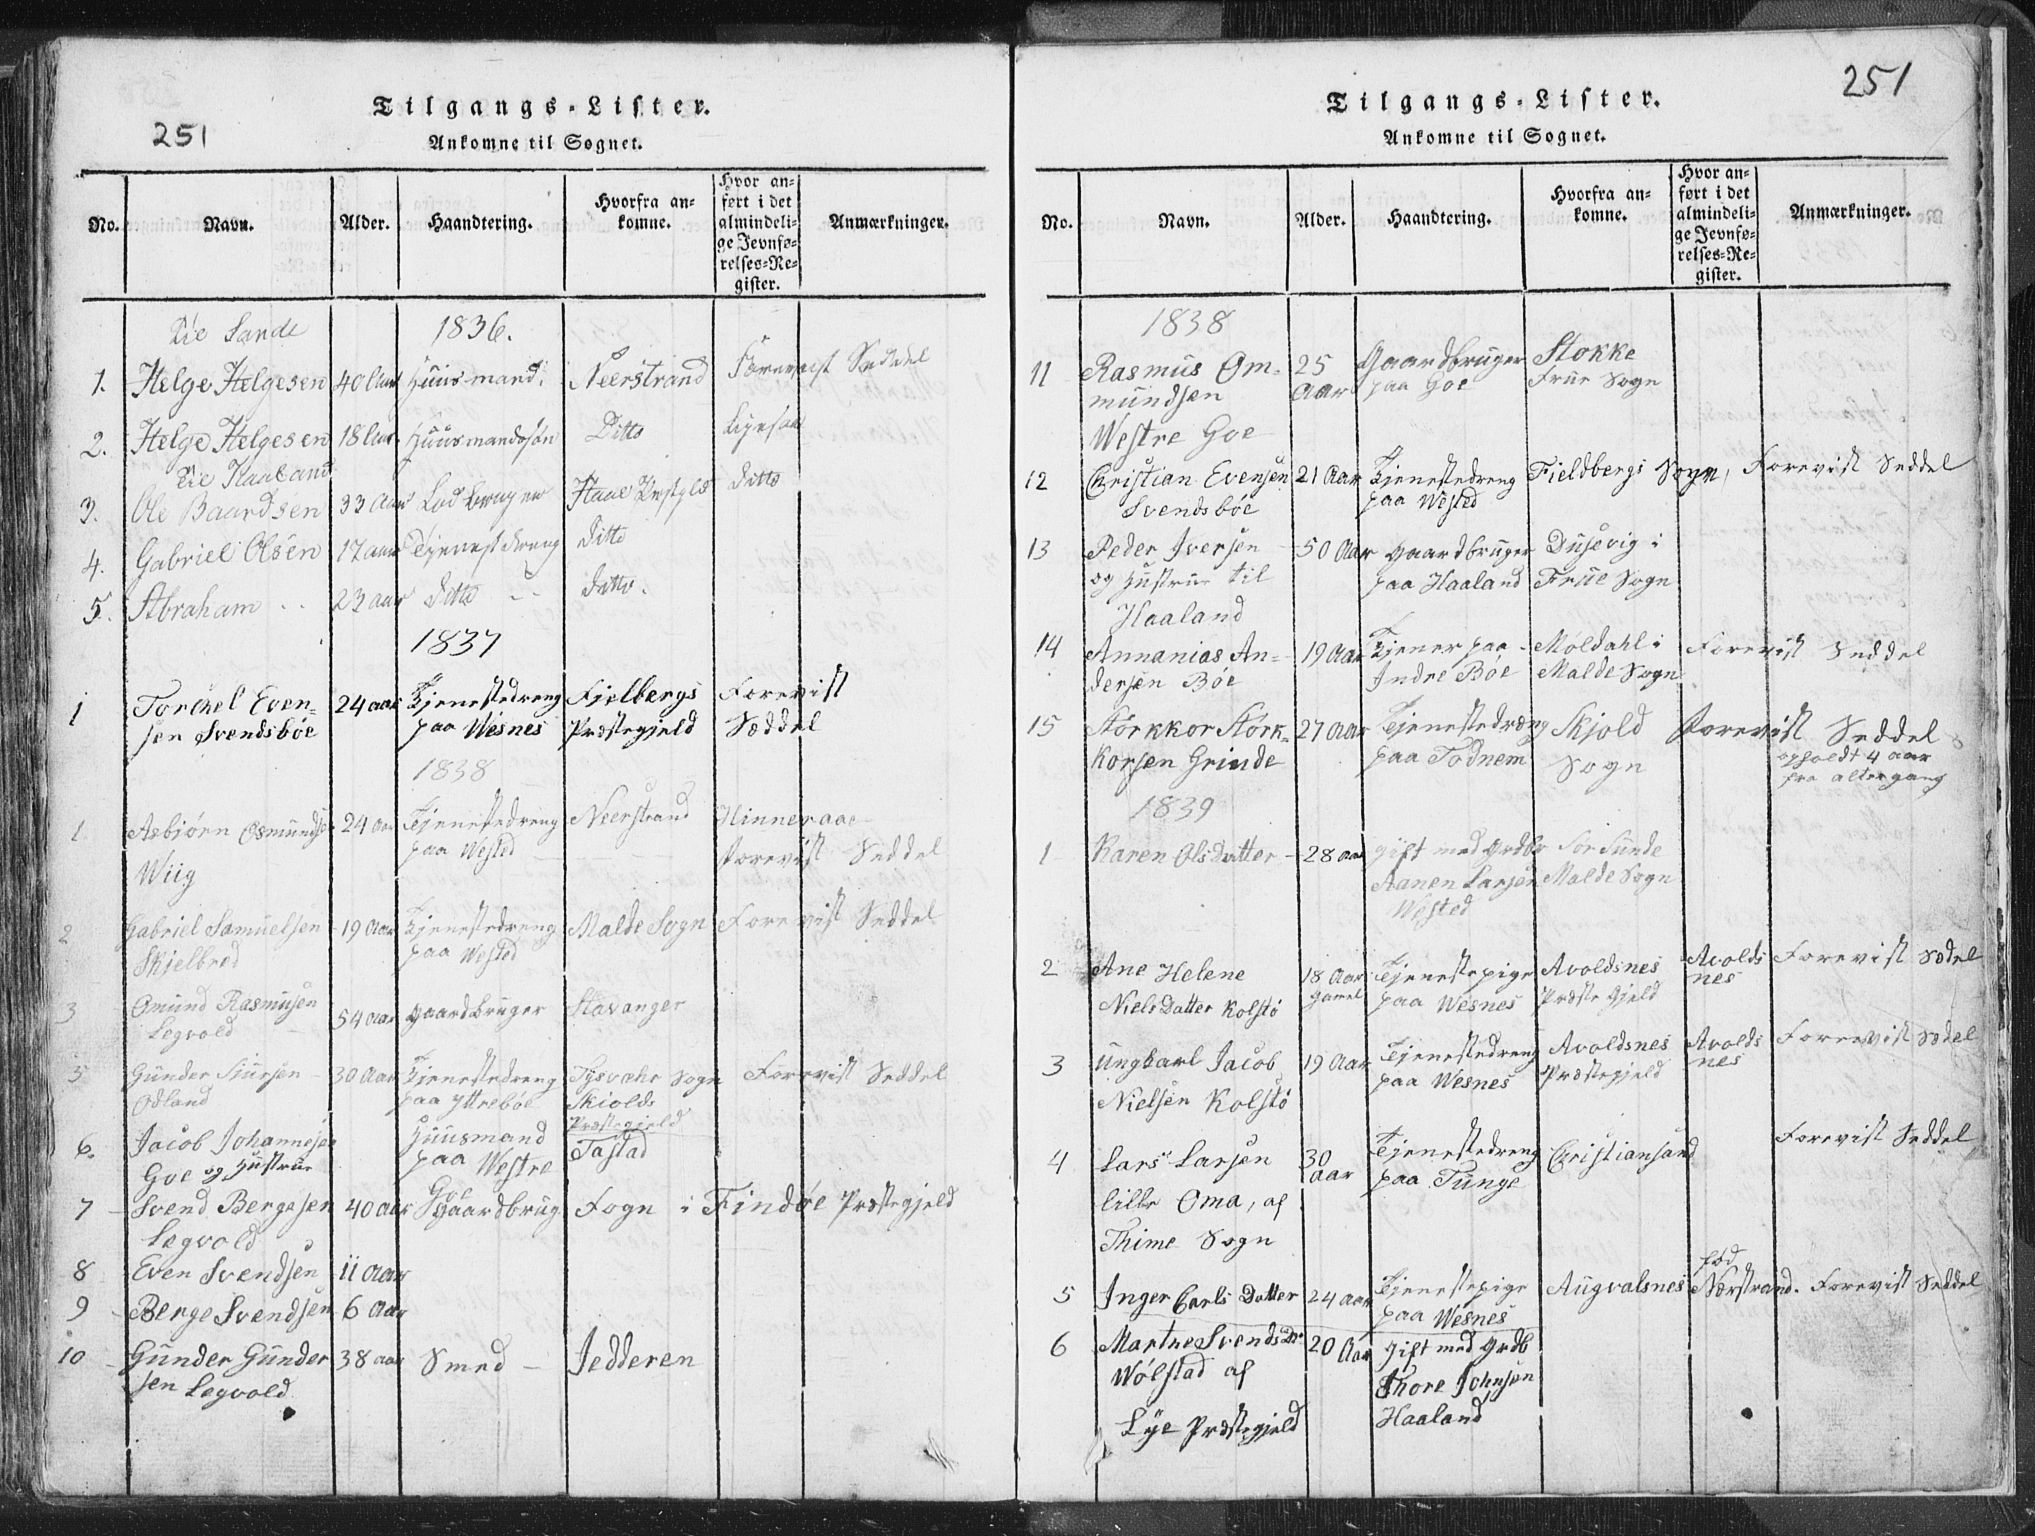 251
Tilgangs-Lister.
Ankomne til Sognet.
No. Navn. Alder. Haandtering. Hvorfra ankomne. Hvor anført i det almindelige Jevnførelses-Register. Anmærkninger.
Sande 1836.
1. Helge Helgesen 40 Aar Huusmand Neerstrand Forevist Seddel
2. Helge Helgesen 18 Aar Huusmandssøn Ditto
Haaland
3. Ole Baardsen 33 Aar Ditto
4. Gabriel Olsen 17 aar Tjenestdreng Ditto
5. Abraham 23 aar Ditto Ditto.
1837
1 Torchel Even- 24 aar Tjenestedreng Fjelbergs Forevist
sen Svendsbøe paa Wesnes Præstegjeld Sæddel
1838
1 Asbjørn Osmundse 24 aar Tjenestedreng Neerstrand Hinneraae
Wiig paa Wested Forevist Seddel
2 Gabriel Samuelsen 19 Aar Tjenestedreng Malde Sogn Forevist Seddel
Skjelbred paa Wested
3 Omund Rasmusen 54 aar gaardbruger Stavanger
Legvold
5 Gunder Siursen 30 Aar Tjenestedreng Tysvahr Sogn Forevist Seddel
Odland paa Yttrebøe Skiolds
Præstegjeld
6. Jacob Johannesen Huusmand Tastad
Goe og Hustrue paa Westre
Goe
7 Svend Bergesen 40 aar Gaardbrug Fogn i Findøe Præstegjeld
Legvold
8 Even Svendsen 11 Aar
9 Berge Svendsen 6 Aar
10 Gunder Gunder 38 aar Smed Jedderen
sen Legvold
251
Tilgangs-Lister.
Ankomne til Sognet.
No. Navn. Alder. Haandtering. Hvorfra ankomne. Hvor anført i det almindelige Jevnførelses-Register. Anmærkninger.
1838
11 Rasmus Om- 25 Gaardbruger Stokke
mundsen Aar paa Goe Frue Sogn
Westre Goe
12 Christian Evensen 21 Aar Tjenestedreng Fieldbergs Sogn, Forevist Seddel
Svendsbøe paa Wested
13 Peder Iversen 50 Aar gaardbruger Dusevig i
og Hustrue til paa Haaland Frue Sogn
Haaland
14 Annanias An- 19 Aar Tjener paa Møldahl i Forevist Seddel
dersen Bøe Indre Bøe Malde Sogn
15 Størkkor Størk- 27 Aar Tjenestedreng Skjold Forevist Seddel
korsen Grinde paa Todnem Sogn opholdt 4 aar
fra altergang
1839
1 Karen Olsdatter 28 aar gift med grdbr Sør Sunde
Aanen Larsen Malde Sogn
Wested
2 Ane Helene 18 Aar Tjenestepige Avoldsnes Avolds Forevist Sedel
Niels Datter Kolstø gamel paa Wesnes Præste Gjeld nes
3 Ungkarl Jacob 19 Aar Tjenestedreng Avoldsnes Avolds Forevist Sedel
Nielsen Kolstø paa Wesnes Præstegjeld nes
4 Lars Larsen 30 Tjenestedreng Christiansand Forevist Seddel
lille Oma, af aar paa Tunge
Thime Sogn
fød
5 Inger Carls Datter 24 aar Tjenestepige Augvalsnes Nærstrand. Forevist Seddel
paa Wesnes
6 Martne Svends Dr 20 Aar gift med grdb
Wølstad af Thore Johnsen
Lye Præstegjeld Haaland